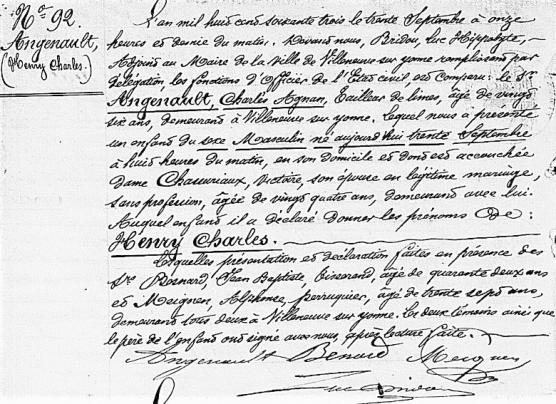 N° 92.
Angenault,
(Henry Charles.)
L'an mil huit cent soixante trois le trente Septembre à onze
heures et demie du matin. Devant nous, Bridou, Luc Hippolyte,
Adjoint au Maire de la Ville de Villeneuve sur yonne remplissant par
délégation, les fonctions d'Officier de l'Etat civil est comparu: le Sr
Angenault, Charles Agnan, Tailleur de limes, âgé de vingt
six ans, demeurant à Villeneuve sur yonne. Lequel nous a présenté
un enfant du sexe Masculin né aujourd'hui trente Septembre
à huit heures du matin, en son domicile et dont est accouchée
Dame Chasuriaux, Victoire, son épouse en légitime mariage,
sans profession, âgée de vingt quatre ans, demeurant avec lui.
Auquel enfant il a déclaré donner les prénoms De:
Henry Charles.
Lesquelles présentation et déclaration faites en présence des
Srs Besnard, Jean Baptiste, Tisserand, âgé de quarante deux ans
et Meignen, Alphonse, perruquier, âgé de trente sept ans,
demeurant tous deux à Villeneuve sur yonne. Les deux témoins ainsi que
le père de l'enfant ont signé avec nous, après lecture faite.
Angenault Benard Meignen